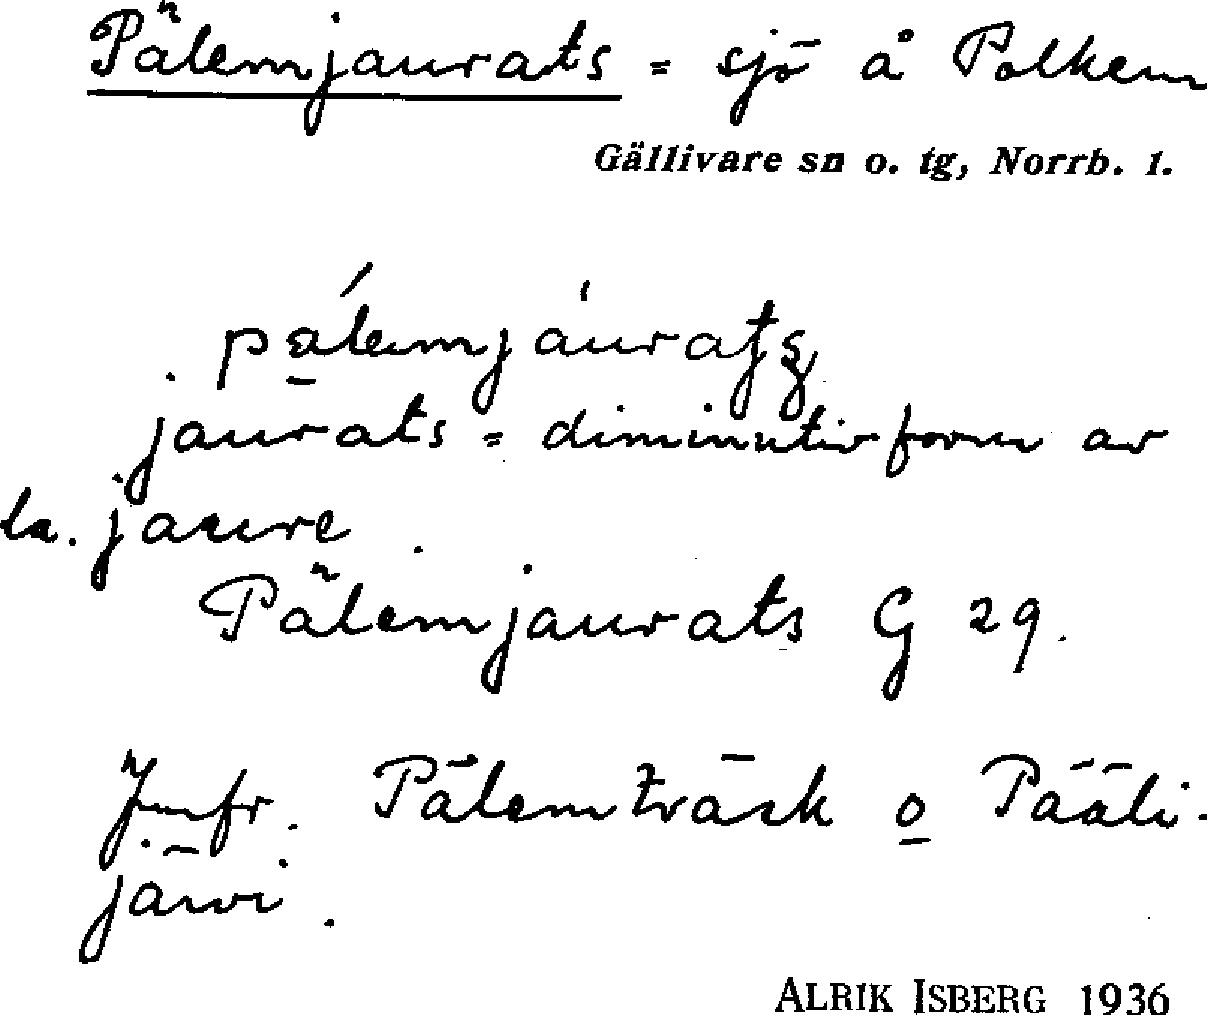 Pälemjaurats = sjö å Polkem
Gällivare sn o. tg, Norrb. l.
pálemjáurats
jaurats = diminutivform av
la. jaure.
Pälemjaurats G 29.
Jmfr. Pälemträsk o Pääli-
järvi.
ALRIK ISBERG 1936